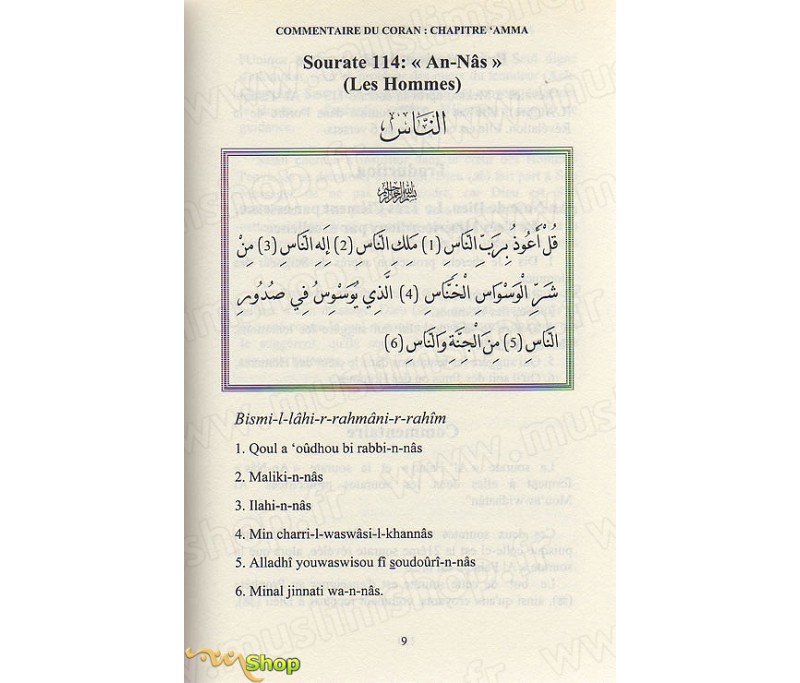 COMMENTAIRE DU CORAN : CHAPITRE ‘AMMA
Sourate 114: « An-Nâs »
(Les Hommes)
النَّاس
بسم الله الرحمن الرحيم
قُلْ أَعُوذُ بِرَبِّ النَّاسِ (1) مَلِكِ النَّاسِ (2) إِلَهِ النَّاسِ (3) مِنْ
شَرِّ الْوَسْوَاسِ الْخَنَّاسِ (4) الَّذِي يُوَسْوِسُ فِي صُدُورِ
النَّاسِ (5) مِنَ الْجِنَّةِ وَالنَّاسِ (6)
Bismi-l-lâhi-r-rahmâni-r-rahîm
1. Qoul a ‘oûdhou bi rabbi-n-nâs
2. Maliki-n-nâs
3. Ilahi-n-nâs
4. Min charri-l-waswâsi-l-khannâs
5. Alladhî youwaswisou fî soudoûrî-n-nâs
6. Minal jinnati wa-n-nâs.
9
Shop